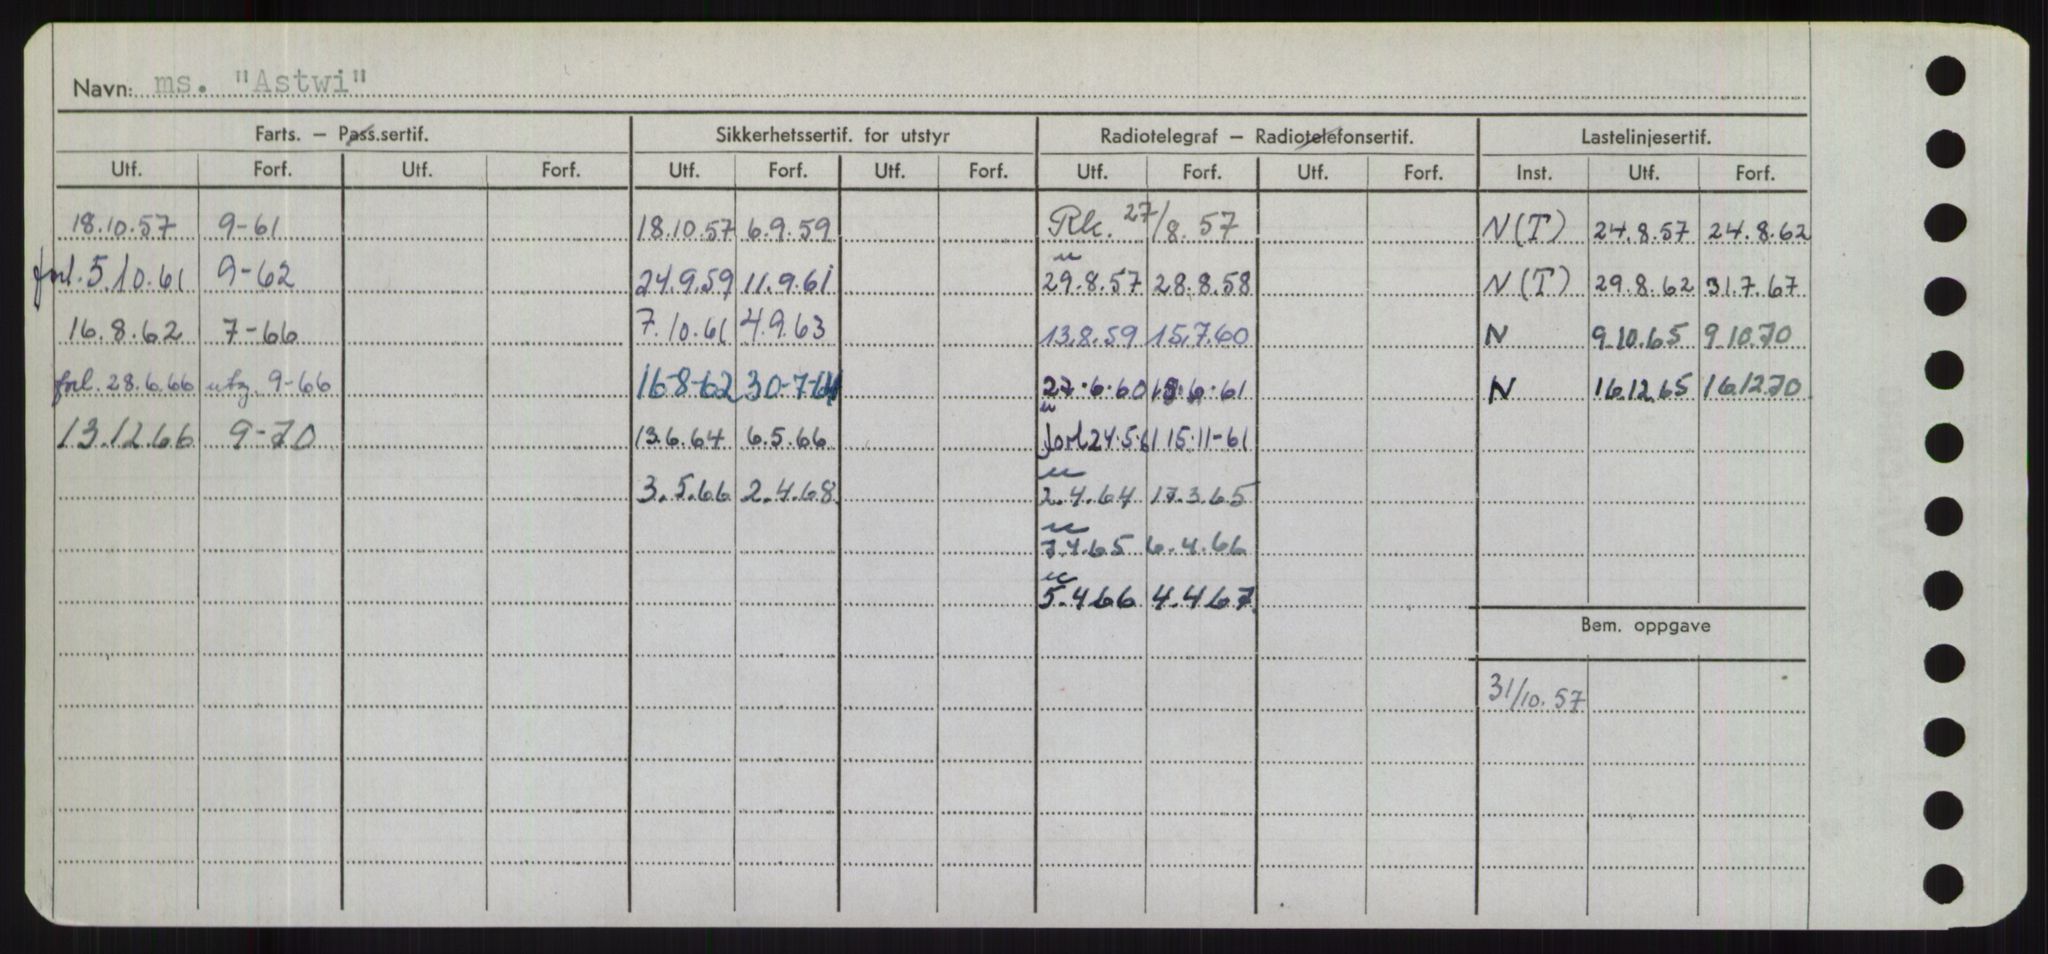 Navn: ms. "Astwi"
Farts. — Pass.sertif. Sikkerhetssertif. for utstyr Radiotelegraf — Radiotelefonsertif. Lastelinjesertif.
Utf. Forf. Utf. Forf. Utf. Forf. Utf. Forf. Utf. Forf. Utf. Forf. Inst. Utf. Forf.
18.10.57 9-61 18.10.57 6.9.59 Rk. 27/8.57 N(T) 24.8.57 24.8.62
forl. 5.10.61 9-62 24.9.59 11.9.61 29.8.57 28.8.58 N(T) 29.8.62 31.7.67
16.8.62 7-66 7.10.61 4.9.63 13.8.59 15.7.60 N 9.10.65 9.10.70
forl. 28.6.66 utg. 9-66 16-8-62 30-7-64 27.6.60 15.6.61 N 16.12.65 16.12.70
13.12.66 9-70 13.6.64 6.5.66 forl 24.5.61 15.11-61
3.5.66 2.4.68 2.4.64 17.3.65
7.4.65 6.4.66
5.4.66 4.4.67
Bem. oppgave
31/10.57